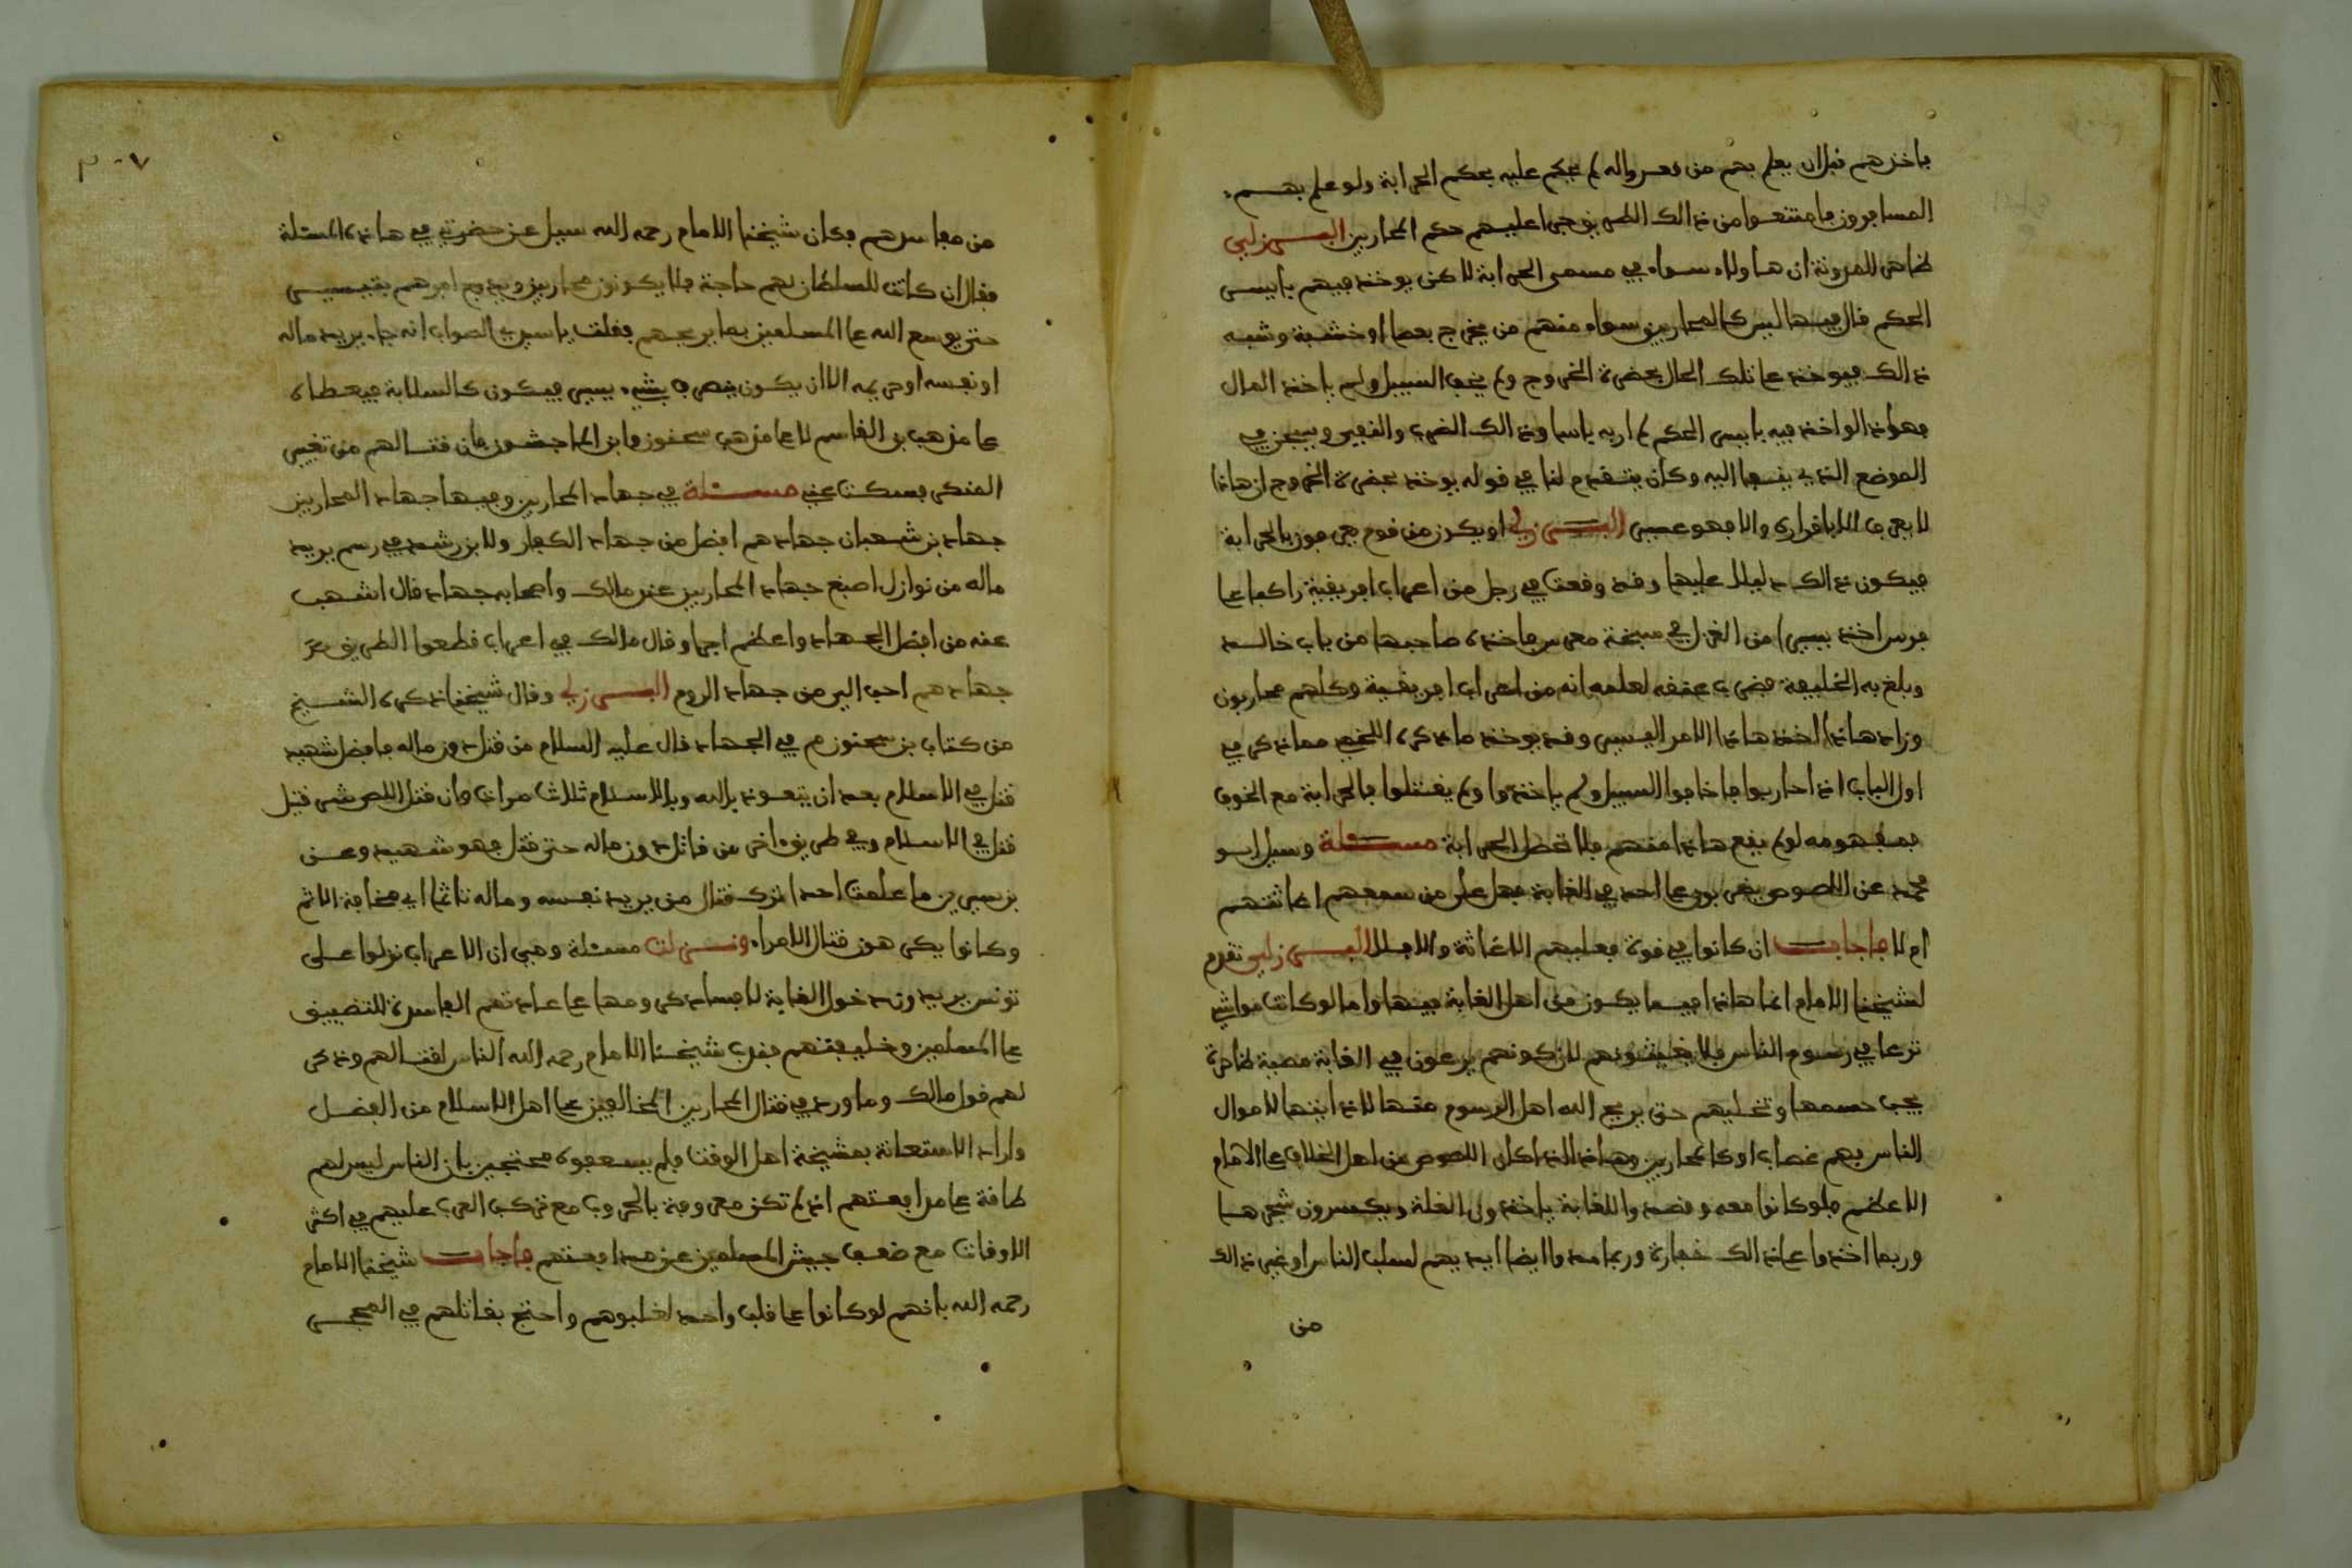 فاخذهم قبل ان يعلم بهم من قعد واله لم يحكم عليه بحكم الحرابة ولو علم بهم
المسافرون فامتنعوا من ذالك الطريق جرا عليهم حكم المحاربين البرزلي
ظاهر المدونة ان هاولاء سواء في مسمى الحرابة لاكن يوخذ فيهم بايسر
الحكم قال فيها ليس كالمحاربين سواء منهم من يخرج بعصا او خشبة وشبه
ذالك فيوخذ على تلك الحال بحضرة الخروج ولم يخف السبيل ولم ياخذ المال
فهاذا لو اخذ فيه بايسر الحكم لم ار به باسا وذالك الضرب والنفي ويسجن في
الموضع الذي ينفى اليه وكان يتقدم لنا في قوله يوخذ بحضرة الخروج ان هاذا
لا يعرف الا باقراره والا فهو عسير البرزلي او يكون من قوم يعرفون بالحرابة
فيكون ذالك دليلا عليها وقد وقعت في رجل من اعراب افريقية راكبا على
فرس اخذ يسيرا من الغزل في سبخة فاخذه صاحبها من باب خالد
وبلغ به الخليفة فضرب عنقه لعلمه انه من اعراب افريقية وكلهم محاربون
وزاد هاذا اخذ هاذا الامر اليسير وقد يوخذ ما ذكره اللخمي مما ذكر في
اول الباب اذا حاربوا فاخافوا السبيل ولم ياخذوا ولم يقتلوا فالحرابة مع الخوف
فمفهومه لو لم يقع هاذا منهم فلا تحصل الحرابة مسئلة وسيل ابو
محمد عن اللصوص يغيرون على احد في الغابة فهل على من سمعهم اغاثتهم
ام لا فاجاب ان كانوا في قوة فعليهم الاغاثة والا فلا البرزلي تقدم
لشيخنا الامام انما هاذا فيما يكون من اهل الغابة فيها واما لو كانت مواشي
ترعا في رسوم الناس فلا يغيثونهم لان كونهم يرعون في الغابة مصيبة ظاهرة
يجب حسمها وتخليهم حتى يريح الله اهل الرسوم منها لاذايتها لاموال
الناس فهم غصاب او كالمحاربين وهاذا اذا كان اللصوص من اهل الخلاف على الامام
الاعظم فلو كانوا معه وقصدوا للغابة ياخذون الغلة ويكسرون شجرها
وربما اخذوا على ذالك خفارة وربما مدوا ايضا ايديهم لسلب الناس او غير ذالك
من
٣٠٧
من مفاسدهم فكان شيخنا الامام رحمه الله سيل عن حضرتي في هاذه المسئلة
فقال ان كانت للسلطان بهم حاجة فلا يكونون محاربين ويدفع امرهم بتيسير
حتى يوسع الله على المسلمين بما يريحهم فقلت يا سيدي الصواب انه جاء يريد ماله
او نفسه او حريمه الا ان يكون يصرف بشيء يسير فيكون كالسلابة فيعطاه
على مذهب بن القاسم لا على مذهب سحنون وابن الماجشون فان قتالهم من تغيير
المنكر فسكت عني مسئلة في جهاد المحاربين وفيها جهاد المحاربين
جهاد بن شعبان جهادهم افضل من جهاد الكفار ولابن رشد في رسم يريد
ماله من نوازل اصبغ جهاد المحاربين عند مالك واصحابه جهاد قال اشهب
عنه من افضل الجهاد واعظم اجرا وقال مالك في اعراب قطعوا الطريق
جهادهم احب الي من جهاد الروم البرزلي وقال شيخنا ذكره الشيخ
من كتاب بن سحنون م في الجهاد قال عليه السلام من قتل دون ماله فافضل شهيد
قتل في الاسلام بعد ان يتعوذ بالله وبالاسلام ثلاث مرات فان قتل اللص شر قتيل
قتل في الاسلام وفي طريق اخر من قاتل دون ماله حتى قتل فهو شهيد وعن
بن سيرين ما علمت احدا ترك قتال من يريد نفسه وماله تاثما اي مخافة الاثم
وكانوا يكرهون قتال الامراء ونزلت مسئلة وهي ان الاعراب نزلوا على
تونس يريدون دخول الغابة لافساد كرومها على عادتهم الفاسدة للتضييق
على المسلمين وخليفتهم فندب شيخنا الامام رحمه الله الناس لقتالهم وذكر
لهم قول مالك وما ورد في قتال المحاربين المخالفين على اهل الاسلام من الفضل
واراد الاستعانة بمشيخة اهل الوقت فلم يسعفوه محتجين بان الناس ليس لهم
طاقة على مدافعتهم اذ لم تكن معروفة بالحروب مع تركب العرب عليهم في اكثر
الاوقات مع ضعف جيش المسلمين عن مدافعتهم فاجاب شيخنا الامام
رحمه الله بانهم لو كانوا على قلب واحد لغلبوهم واحتج بقتالهم في